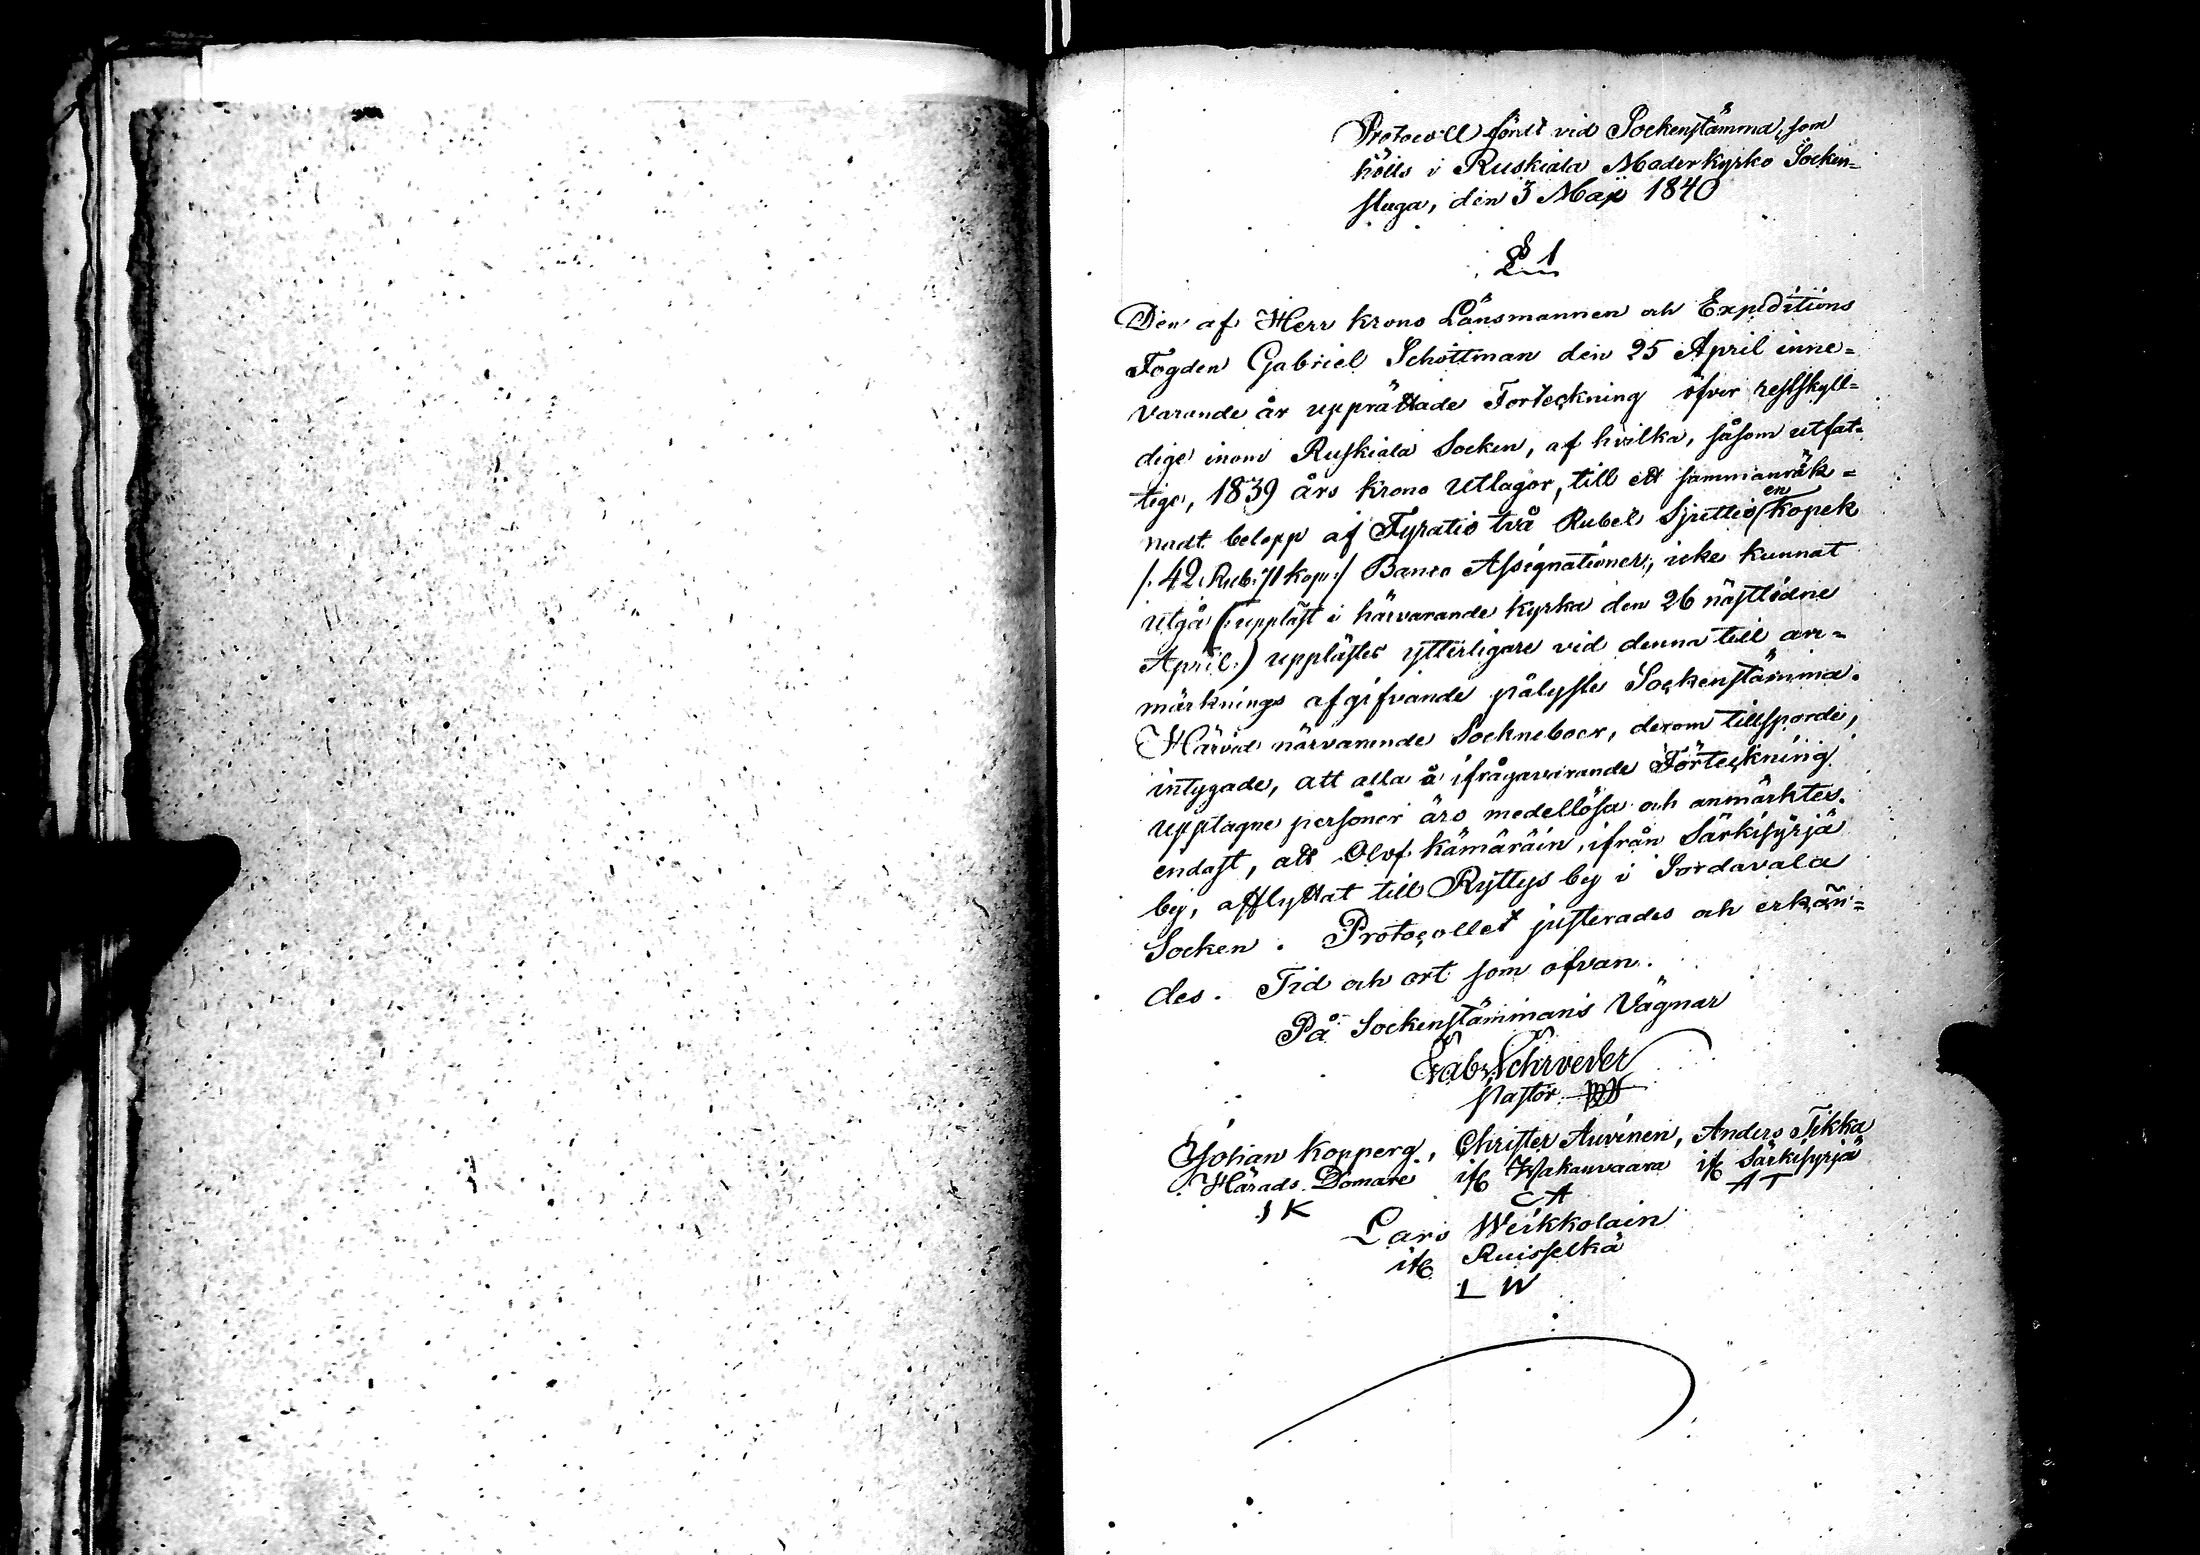 Protocoll fördt vid Sockenstämma, som
hölls i Ruskiala Moderkyrko Socken-
stuga, den 3 Maji 1840
§ 1
Den af Herr Krono Länsmannen och Expeditions
Fogden Gabriel Schottman den 25 April inne-
varande år upprättade Forteckning öfver restskyll-
dige inom Ruskiala Socken, af hvilka, såsom utfat-
tige, 1839 års Krono Utlagor, till ett sammanräk-
nadt belopp af Fyratio två Rubel Sjuttio en Kopek
/: 42 Rub. 71 kop :/ Banco Assignationer, icke kunnat
utgå (: uppläst i härvarande kyrka den 26 nästlidne
April :) upplästes ytterligare vid denna till an-
märknings afgifvande pålyste Sockenstämma.
Härvid närvarende Sockneboer, derom tillsporde,
intygade, att alla å ifrågavarande Förteckning
upptagne personer äro medellösa och anmärktes
endast, att Olof Kämäräin, ifrån Särkisyrjä
by, afflyttat till Ryttys by i Sordavala
Socken. Protocollet justerades och erkän-
des. Tid och ort som ofvan.
På Sockenstämmans Vägnar
Gab. Schrveder
Pastor
Johan Kopperg, Christer Auvinen, Anders Tikka
Härads Domare ifr Wakauvaara ifr Särkisyrjä
J K C A A T
Lars Weikkolain
ifr Ruisselkä
L W